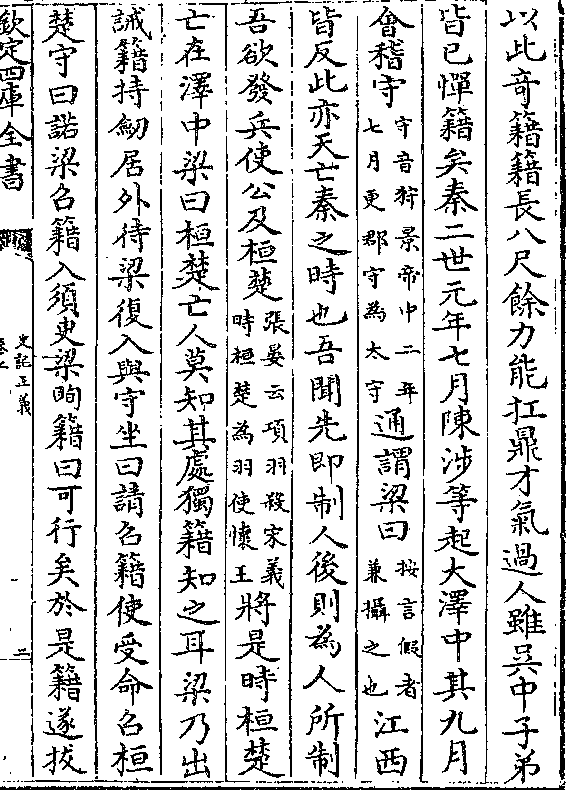 以此奇籍籍長八尺餘力能扛鼎才氣過人雖吳中子弟
皆已憚籍矣秦二世元年七月陳涉等起大澤中其九月
會稽守守音狩景帝中二年七月更郡守為太守通謂梁曰按言假者兼攝之也江西
皆反此亦天亡秦之時也吾聞先即制人後則為人所制
吾欲發兵使公及桓楚張晏云項羽殺宋義時桓楚為羽使懷王將是時桓楚
亡在澤中梁曰桓楚亡人莫知其處獨籍知之耳梁乃出
誡籍持劒居外待梁復入與守坐曰請召籍使受命召桓
楚守曰諾梁召籍入須臾梁眴籍曰可行矣於是籍遂拔
欽定四庫全書
史記正義